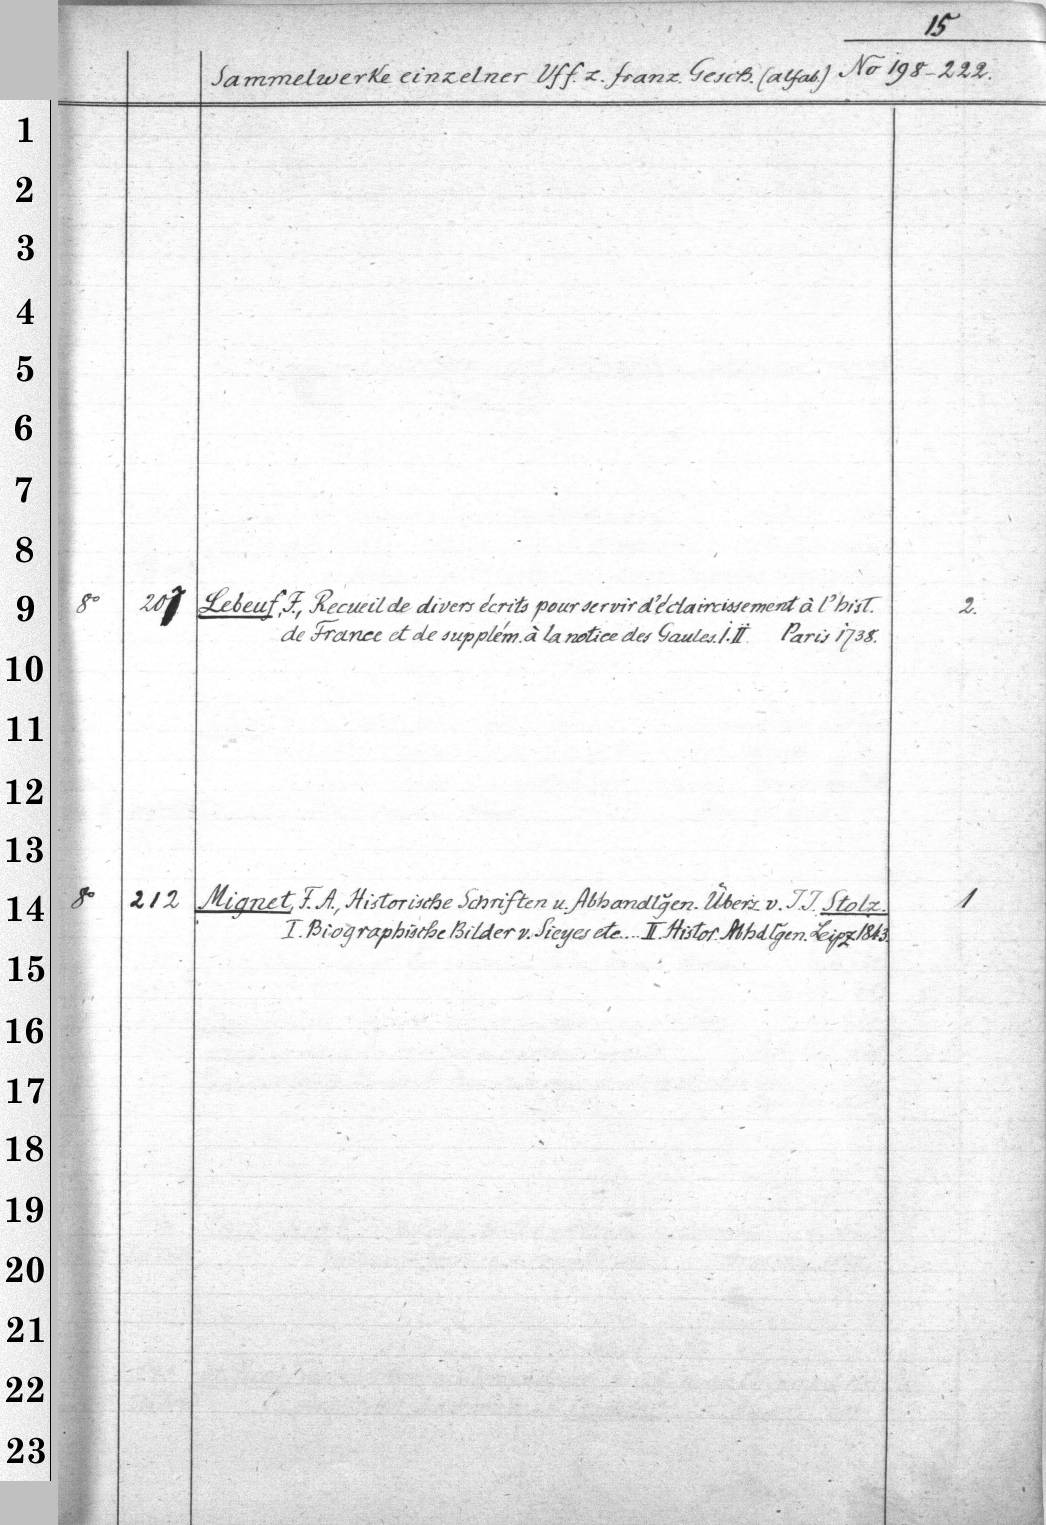 15
Sammelwerke einzelner Vff. z. franz. Gesch. (alfab.) No 198-222.
1
2
3
4
5
6
7
8
9 8° 207 Lebeuf, F., Recueil de divers écrits pour servir d'éclaircissement à l'hist. 2.
de France et de supplém. à la notice des Gaules. I. II Paris 1738.
10
11
12
13
14 8° 212 Mignet, F. A., Historische Schriften u. Abhandlgen. Übers. v. J. J. Stolz. 1
I. Biographische Bilder v. Sieyes etc.... II. Histor. Abhdlgen. Leipz. 1843.
15
16
17
18
19
20
21
22
23